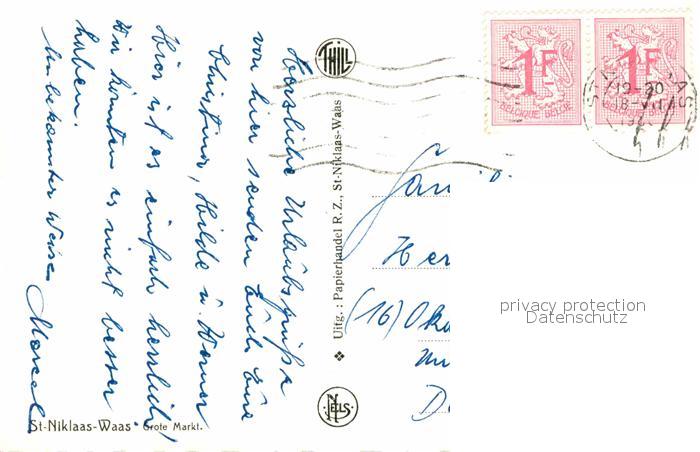 Herzliche Urlaubsgrüße
von hier senden Euch Eure
Christina, Hilde u. Werner
Hier ist es einfach herrlich!
Wir könnten es nicht besser
haben.
Unbekannter Weise Marcel
St-Niklaas-Waas Grote Markt.
THILL
Uitg. : Papierhandel R. Z., St-Niklaas-Waas
NELS
1F
BELGIQUE-BELGIE
1F
BELGIQUE-BELGIE
19-20
18-VII
Fam
Her
(16) Oka
D
privacy protection
Datenschutz